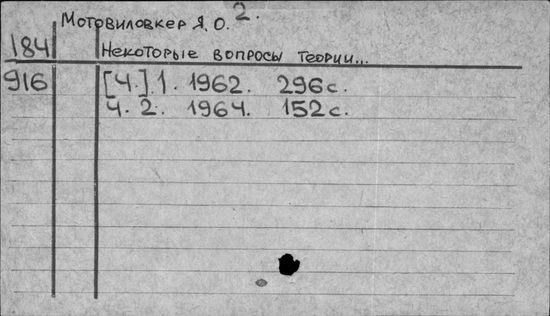 Мотовиловкер Я. О. 2.
184 Некоторые вопросы теории...
916 [Ч.] 1. 1962. 296 с.
Ч. 2. 1964. 152 с.